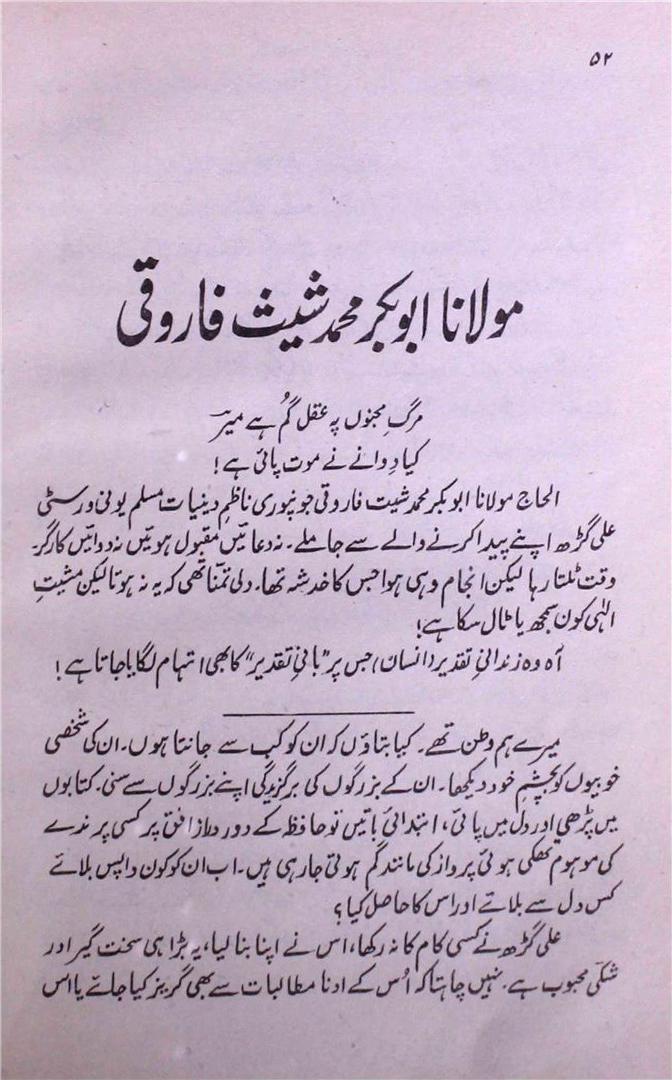 ۵۲
مولانا ابوبکر محمد شیث فاروقی
مرگِ مجنوں پہ عقل گُم ہے میرؔ
کیا دِوانے نے موت پائی ہے!
الحاج مولانا ابوبکر محمد شیث فاروقی جونپوری ناظمِ دینیات مسلم یونی ورسٹی
علی گڑھ اپنے پیدا کرنے والے سے جاملے۔ نہ دعائیں مقبول ہوئیں نہ دوائیں کارگر
وقت ٹلتا رہا لیکن انجام وہی ہوا جس کا خدشہ تھا۔ دلی تمنّا تھی کہ یہ نہ ہوتا لیکن مشیتِ
الٰہی کون سمجھ یا ٹال سکا ہے!
آہ وہ زندانیِ تقدیر (انسان) جس پر "بانیِ تقدیر" کا بھی اتہام لگایا جاتا ہے!
میرے ہم وطن تھے۔ کیا بتاؤں کہ ان کو کب سے جانتا ہوں۔ ان کی شخصی
خوبیوں کو بچشمِ خود دیکھا۔ ان کے بزرگوں کی برگزیدگی اپنے بزرگوں سے سنی۔ کتابوں
میں پڑھی اور دل میں پائی، ابتدائی باتیں تو حافظہ کے دور دراز افق پر کسی پرندے
کی موہوم تھکی ہوئی پرواز کی مانند گم ہوتی جارہی ہیں۔ اب ان کو کون واپس بلائے
کس دل سے بلائے اور اس کا حاصل کیا؟
علی گڑھ نے کسی کام کا نہ رکھا، اس نے اپنا بنا لیا، یہ بڑا ہی سخت گیر اور
شکّی محبوب ہے۔ نہیں چاہتا کہ اُس کے ادنا مطالبات سے بھی گریز کیا جائے یا اس